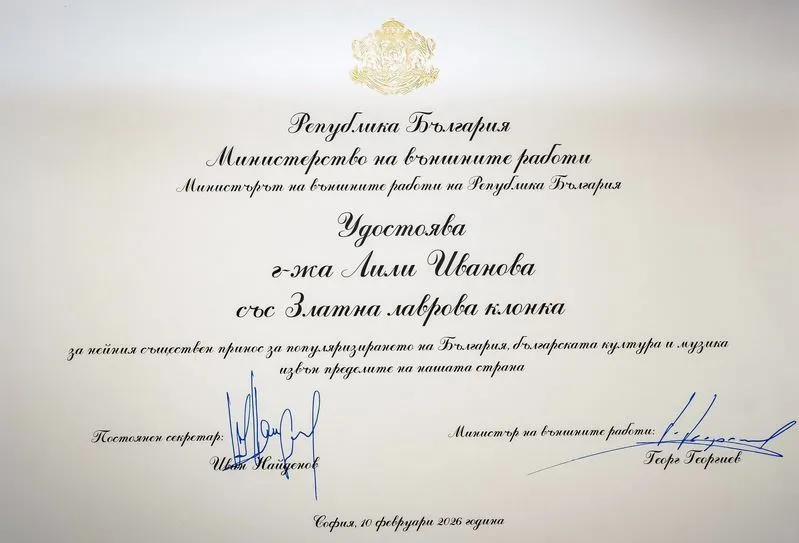 Република България
Министерство на външните работи
Министърът на външните работи на Република България
Удостоява
г-жа Лили Иванова
със Златна лаврова клонка
за нейния съществен принос за популяризирането на България, българската култура и музика
извън пределите на нашата страна
Постоянен секретар:
Иван Найденов
Министър на външните работи:
Георг Георгиев
София, 10 февруари 2026 година